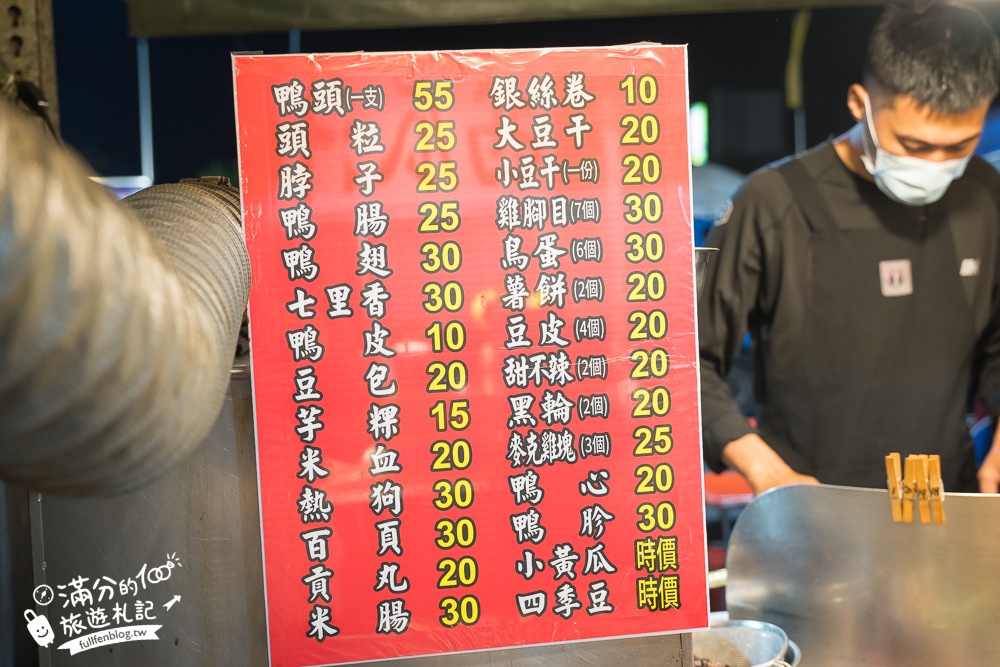 鴨頭(一支) 55
頭粒 25
脖子 25
鴨腸 25
鴨翅 30
七里香 30
鴨皮 10
豆包 20
芋粿 15
米血 20
熱狗 30
百頁 30
貢丸 20
米腸 30
銀絲卷 10
大豆干 20
小豆干(一份) 20
雞腳目(7個) 30
鳥蛋(6個) 30
薯餅(2個) 20
豆皮(4個) 20
甜不辣(2個) 20
黑輪(2個) 20
麥克雞塊(3個) 25
鴨心 20
鴨胗 30
小黃瓜 時價
四季豆 時價
滿分的
旅遊札記
fullfenblog.tw